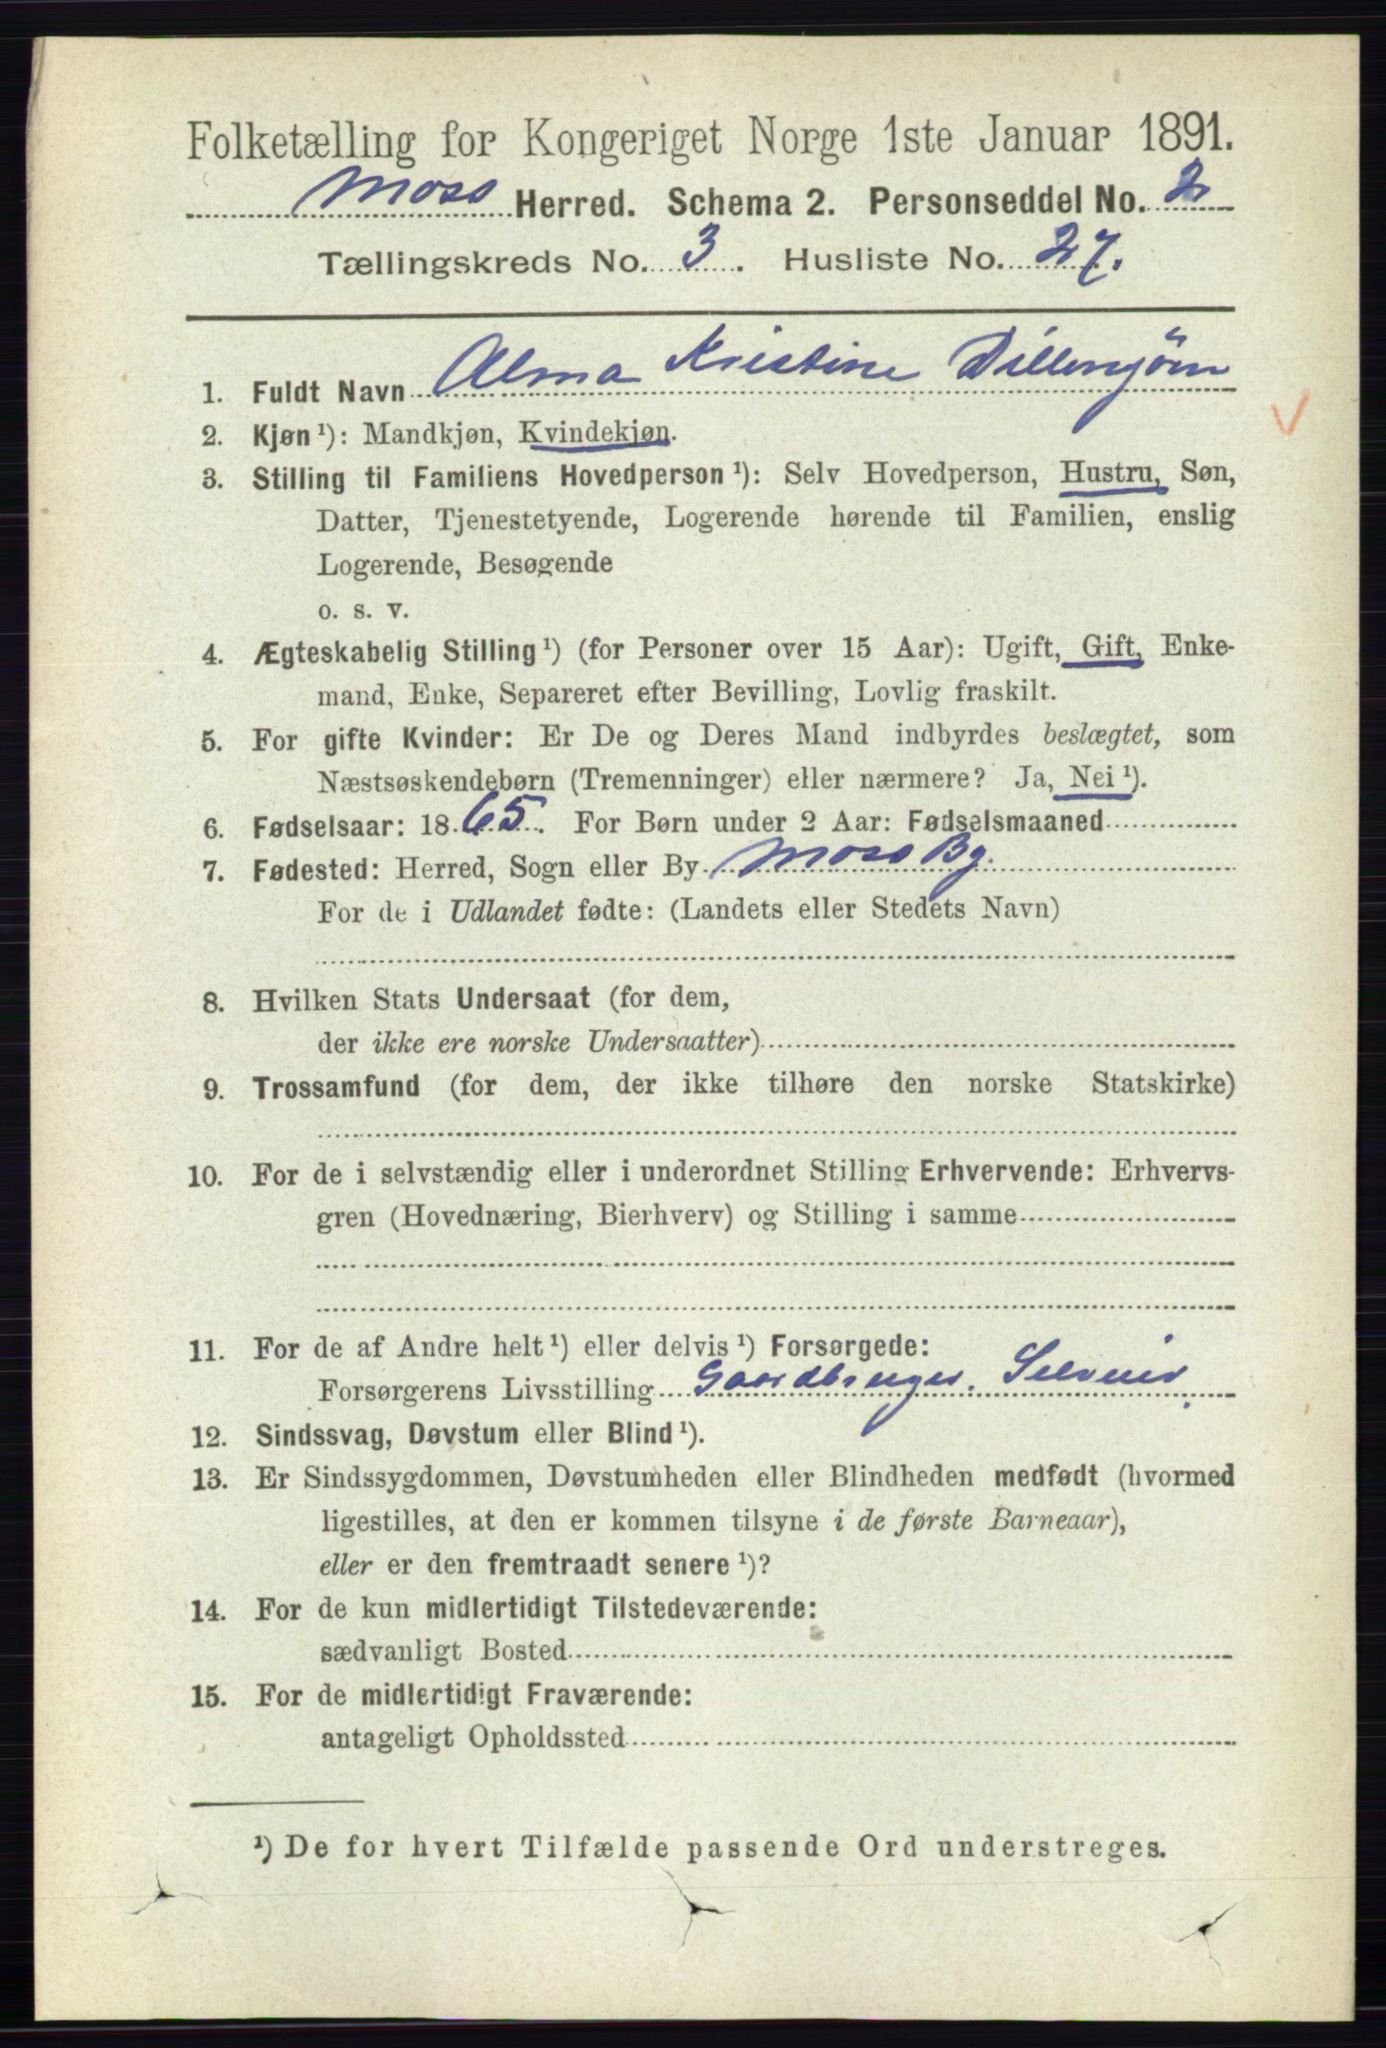 Folketælling for Kongeriget Norge 1ste Januar 1891.
Moss Herred. Schema 2. Personseddel No. 2
Tællingskreds No. 3. Husliste No. 27.
1. Fuldt Navn Alma Kristine
2. Kjøn ¹): Mandkjøn, Kvindekjøn.
3. Stilling til Familiens Hovedperson ¹): Selv Hovedperson, Hustru, Søn,
Datter, Tjenestetyende, Logerende hørende til Familien, enslig
Logerende, Besøgende
o. s. v.
4. Ægteskabelig Stilling ¹) (for Personer over 15 Aar): Ugift, Gift, Enke-
mand, Enke, Separeret efter Bevilling, Lovlig fraskilt.
5. For gifte Kvinder: Er De og Deres Mand indbyrdes beslægtet, som
Næstsøskendebørn (Tremenninger) eller nærmere? Ja, Nei ¹).
6. Fødselsaar: 1865. For Børn under 2 Aar: Fødselsmaaned
7. Fødested: Herred, Sogn eller By Moss By.
For de i Udlandet fødte: (Landets eller Stedets Navn)
8. Hvilken Stats Undersaat (for dem,
der ikke ere norske Undersaatter)
9. Trossamfund (for dem, der ikke tilhøre den norske Statskirke)
10. For de i selvstændig eller i underordnet Stilling Erhvervende: Erhvervs-
gren (Hovednæring, Bierhverv) og Stilling i samme
11. For de af Andre helt ¹) eller delvis ¹) Forsørgede:
Forsørgerens Livsstilling Gaardbruger.
12. Sindssvag, Døvstum eller Blind ¹).
13. Er Sindssygdommen, Døvstumheden eller Blindheden medfødt (hvormed
ligestilles, at den er kommen tilsyne i de første Barneaar),
eller er den fremtraadt senere ¹)?
14. For de kun midlertidigt Tilstedeværende:
sædvanligt Bosted
15. For de midlertidigt Fraværende:
antageligt Opholdssted
¹) De for hvert Tilfælde passende Ord understreges.